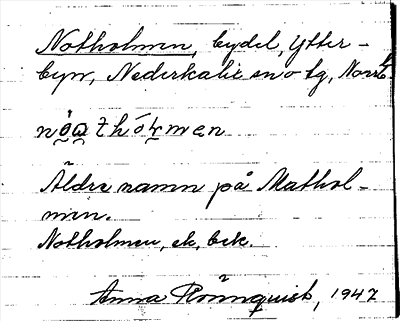 Notholmen, bydel, Ytter-
byn, Nederkalix sn o tg, Norrb.
Äldre namn på Mathol-
men.
Notholmen, ek. bek.
Anna Rönnquist, 1947